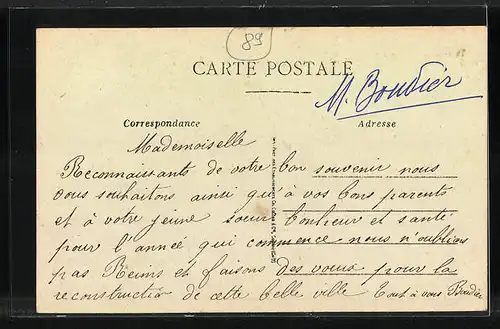 89
CARTE POSTALE
M. Boudier
Correspondance
Adresse
Mademoiselle
Reconnaissants de votre bon souvenir nous
vous souhaitons ainsi qu'à vos bons parents
et à votre jeune soeur bonheur et santé
pour l'année qui commence nous n'oublions
pas Reims et faisons des voeux pour la
reconstruction de cette belle ville tout à vous Boudier